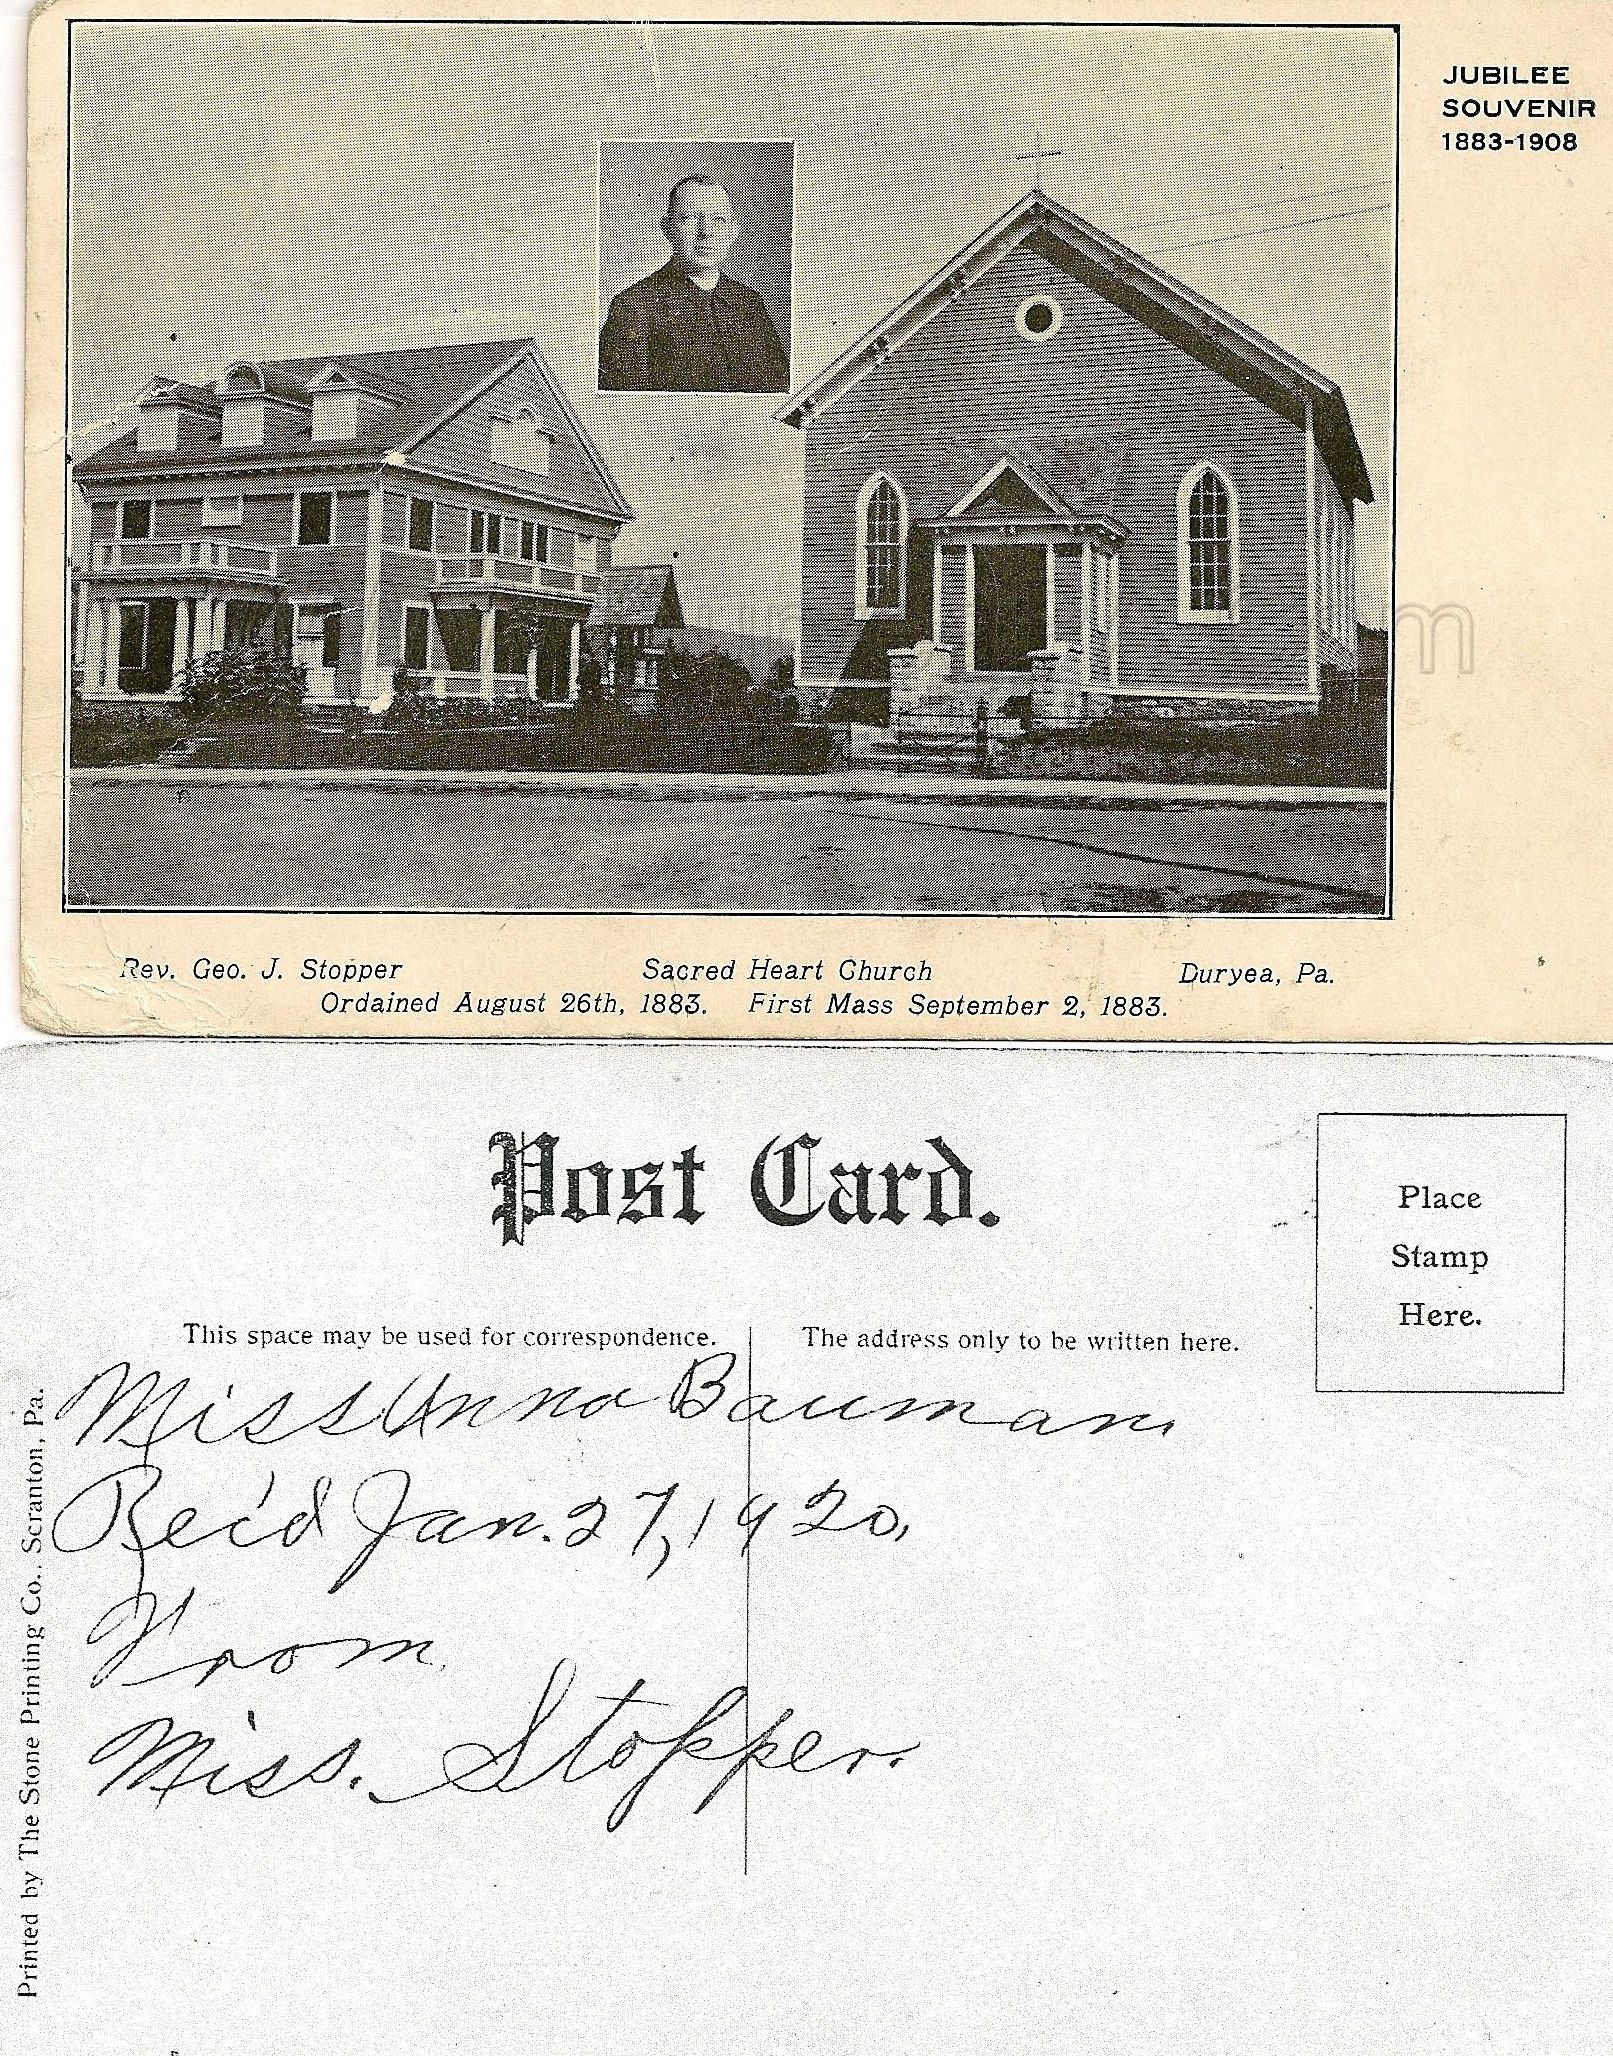 JUBILEE
SOUVENIR
1883-1908
Rev. Geo. J. Stopper Sacred Heart Church Duryea, Pa.
Ordained August 26th, 1883. First Mass September 2, 1883.
Post Card.
Place
Stamp
Here.
This space may be used for correspondence. The address only to be written here.
Miss Anna Bauman
Rec'd Jan. 27, 1920,
From
Miss. Stopper.
Printed by The Stone Printing Co., Scranton, Pa.
m